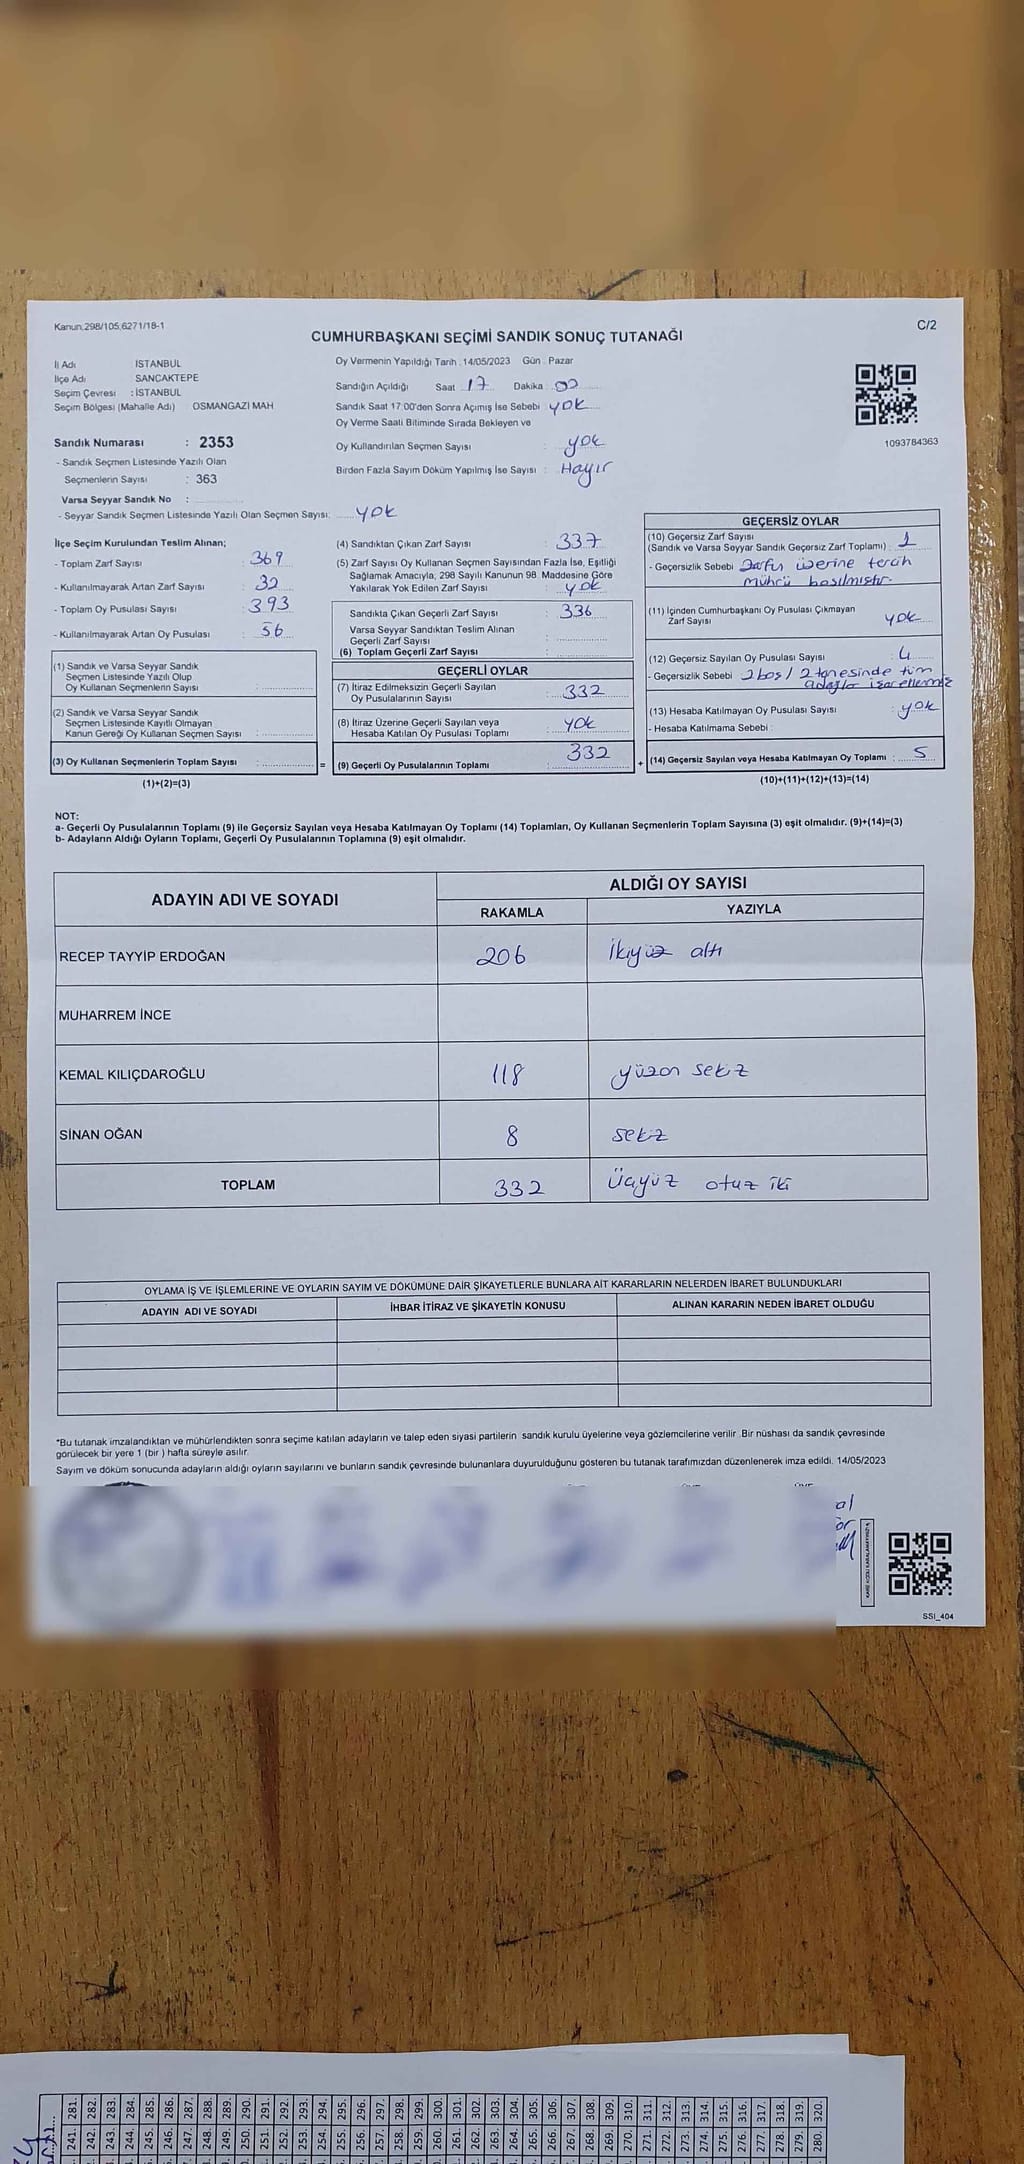 Kanun:298/105,6271/18-1
C/2
CUMHURBAŞKANI SEÇİMİ SANDIK SONUÇ TUTANAĞI
İl Adı İSTANBUL
İlçe Adı SANCAKTEPE
Seçim Çevresi : İSTANBUL
Seçim Bölgesi (Mahalle Adı) OSMANGAZİ MAH
Sandık Numarası : 2353
- Sandık Seçmen Listesinde Yazılı Olan
Seçmenlerin Sayısı : 363
Varsa Seyyar Sandık No :
- Seyyar Sandık Seçmen Listesinde Yazılı Olan Seçmen Sayısı: yok
Oy Vermenin Yapıldığı Tarih : 14/05/2023 Gün : Pazar
Sandığın Açıldığı Saat 17 Dakika : 00
Sandık Saat 17:00'den Sonra Açımış İse Sebebi yok
Oy Verme Saati Bitiminde Sırada Bekleyen ve
Oy Kullandırılan Seçmen Sayısı : yok
Birden Fazla Sayım Döküm Yapılmış İse Sayısı : Hayır
1093784363
İlçe Seçim Kurulundan Teslim Alınan;
- Toplam Zarf Sayısı : 369
- Kullanılmayarak Artan Zarf Sayısı : 32
- Toplam Oy Pusulası Sayısı : 393
- Kullanılmayarak Artan Oy Pusulası : 56
(1) Sandık ve Varsa Seyyar Sandık
Seçmen Listesinde Yazılı Olup
Oy Kullanan Seçmenlerin Sayısı :
(2) Sandık ve Varsa Seyyar Sandık
Seçmen Listesinde Kayıtlı Olmayan
Kanun Gereği Oy Kullanan Seçmen Sayısı :
(3) Oy Kullanan Seçmenlerin Toplam Sayısı :
(1)+(2)=(3)
(4) Sandıktan Çıkan Zarf Sayısı : 337
(5) Zarf Sayısı Oy Kullanan Seçmen Sayısından Fazla İse, Eşitliği
Sağlamak Amacıyla, 298 Sayılı Kanunun 98. Maddesine Göre
Yakılarak Yok Edilen Zarf Sayısı : yok
Sandıkta Çıkan Geçerli Zarf Sayısı : 336
Varsa Seyyar Sandıktan Teslim Alınan
Geçerli Zarf Sayısı :
(6) Toplam Geçerli Zarf Sayısı :
GEÇERLİ OYLAR
(7) İtiraz Edilmeksizin Geçerli Sayılan
Oy Pusulalarının Sayısı : 332
(8) İtiraz Üzerine Geçerli Sayılan veya
Hesaba Katılan Oy Pusulası Toplamı : yok
= (9) Geçerli Oy Pusulalarının Toplamı : 332
GEÇERSİZ OYLAR
(10) Geçersiz Zarf Sayısı
(Sandık ve Varsa Seyyar Sandık Geçersiz Zarf Toplamı) : 1
- Geçersizlik Sebebi Zarfın üzerine tercih
mührü basılmıştır
(11) İçinden Cumhurbaşkanı Oy Pusulası Çıkmayan
Zarf Sayısı yok
(12) Geçersiz Sayılan Oy Pusulası Sayısı : 4
- Geçersizlik Sebebi 2 boş / 2 tanesinde tüm
adaylar işaretlenmiş
(13) Hesaba Katılmayan Oy Pusulası Sayısı : yok
- Hesaba Katılmama Sebebi :
+ (14) Geçersiz Sayılan veya Hesaba Katılmayan Oy Toplamı : 5
(10)+(11)+(12)+(13)=(14)
NOT:
a- Geçerli Oy Pusulalarının Toplamı (9) ile Geçersiz Sayılan veya Hesaba Katılmayan Oy Toplamı (14) Toplamları, Oy Kullanan Seçmenlerin Toplam Sayısına (3) eşit olmalıdır. (9)+(14)=(3)
b- Adayların Aldığı Oyların Toplamı, Geçerli Oy Pusulalarının Toplamına (9) eşit olmalıdır.
ADAYIN ADI VE SOYADI ALDIĞI OY SAYISI
RAKAMLA YAZIYLA
RECEP TAYYİP ERDOĞAN 206 ikiyüz altı
MUHARREM İNCE
KEMAL KILIÇDAROĞLU 118 yüzon sekiz
SİNAN OĞAN 8 sekiz
TOPLAM 332 üçyüz otuz iki
OYLAMA İŞ VE İŞLEMLERİNE VE OYLARIN SAYIM VE DÖKÜMÜNE DAİR ŞİKAYETLERLE BUNLARA AİT KARARLARIN NELERDEN İBARET BULUNDUKLARI
ADAYIN ADI VE SOYADI İHBAR İTİRAZ VE ŞİKAYETİN KONUSU ALINAN KARARIN NEDEN İBARET OLDUĞU
*Bu tutanak imzalandıktan ve mühürlendikten sonra seçime katılan adayların ve talep eden siyasi partilerin sandık kurulu üyelerine veya gözlemcilerine verilir. Bir nüshası da sandık çevresinde
görülecek bir yere 1 (bir ) hafta süreyle asılır.
Sayım ve döküm sonucunda adayların aldığı oyların sayılarını ve bunların sandık çevresinde bulunanlara duyurulduğunu gösteren bu tutanak tarafımızdan düzenlenerek imza edildi. 14/05/2023
SSI_404
281. 282. 283. 284. 285. 286. 287. 288. 289. 290. 291. 292. 293. 294. 295. 296. 297. 298. 299. 300. 301. 302. 303. 304. 305. 306. 307. 308. 309. 310. 311. 312. 313. 314. 315. 316. 317. 318. 319. 320.
241. 242. 243. 244. 245. 246. 247. 248. 249. 250. 251. 252. 253. 254. 255. 256. 257. 258. 259. 260. 261. 262. 263. 264. 265. 266. 267. 268. 269. 270. 271. 272. 273. 274. 275. 276. 277. 278. 279. 280.